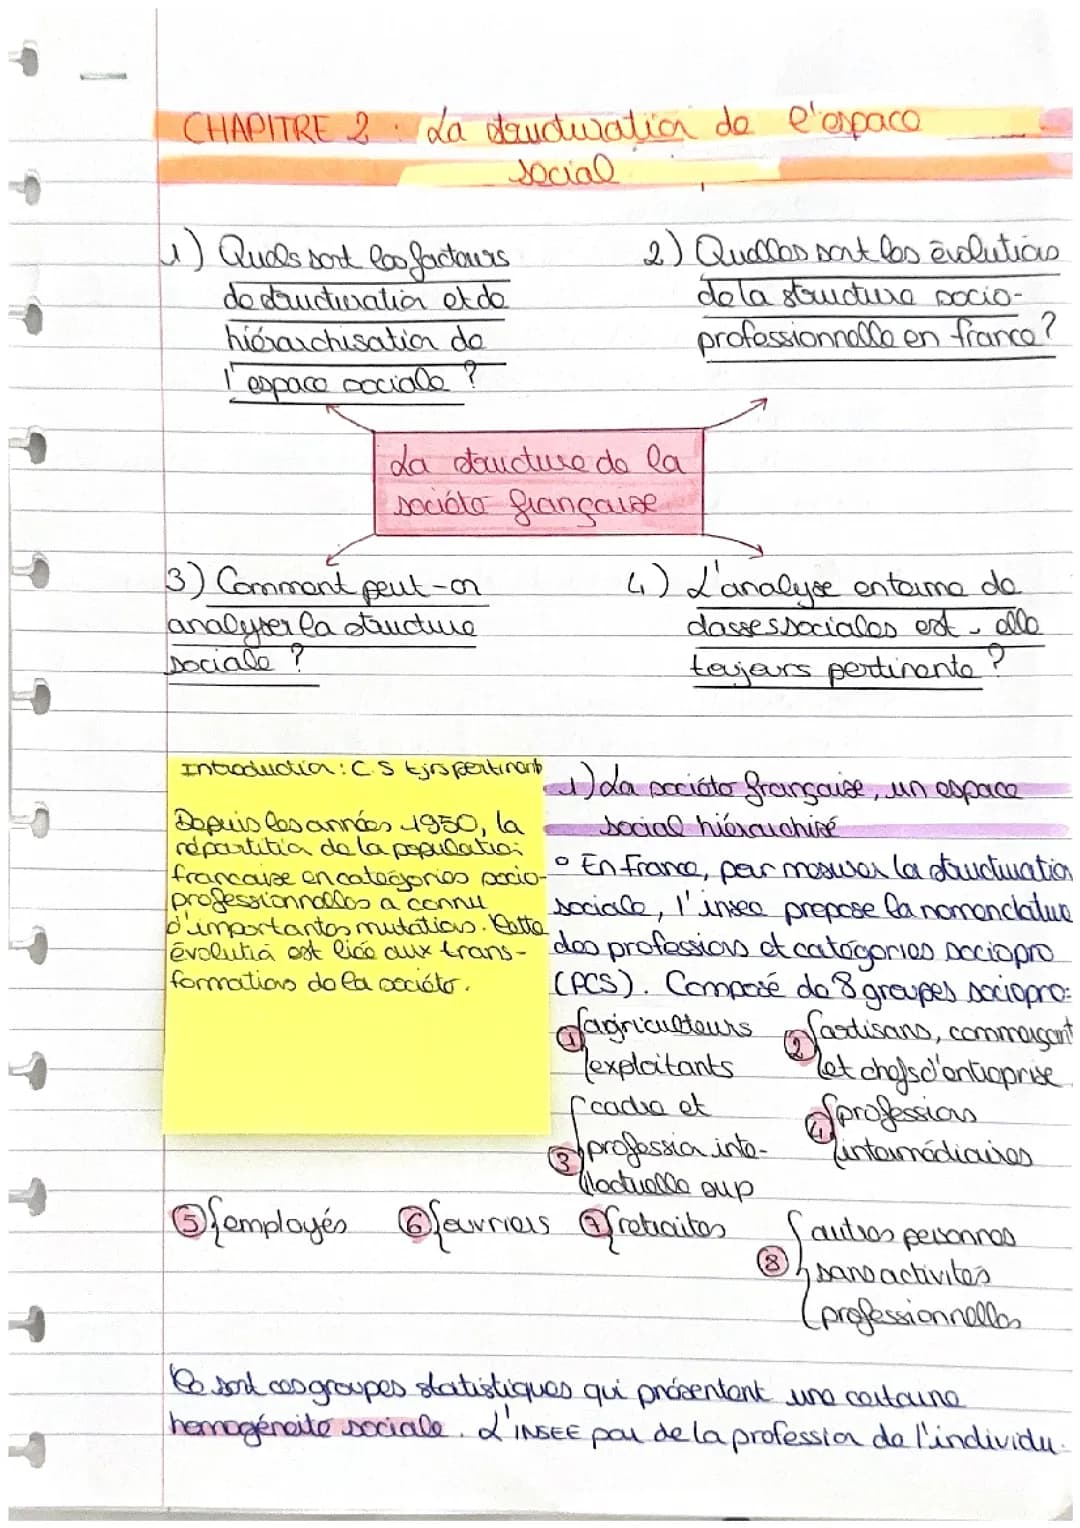 CHAPITRE 2 : La structuration de l'espace
social
1) Quels sont les facteurs
de structuration et de
hiérarchisation de
l'espace sociale ?
2) Quelles sont les évolutions
de la structure socio-
professionnelle en france ?
La structure de la
société française
3) Comment peut-on
analyser la structure
sociale ?
4) L'analyse en terme de
classes sociales est-elle
toujours pertinente ?
Introduction : C.S tjrs pertinent
Depuis les années 1950, la
répartition de la population
francaise en catégories socio-
professionnelles a connu
d'importantes mutations. Cette
évolution est liée aux trans-
formations de la société.
1) La société française, un espace
social hiérarchisé
° En france, pour mesurer la structuration
sociale, l'insee propose la nomenclature
des professions et catégories sociopro
(PCS). Composé de 8 groupes sociopro:
1 { agriculteurs
exploitants
2 { artisans, commerçant
et chefs d'entreprise
3 { cadre et
profession inte-
llectuelle sup
4 { professions
intermédiaires
5 { employés 6 { ouvriers 7 { retraités
8 { autres personnes
sans activités
professionnelles
Ce sont ces groupes statistiques qui présentent une certaine
homogénéité sociale. L'INSEE part de la profession de l'individu.